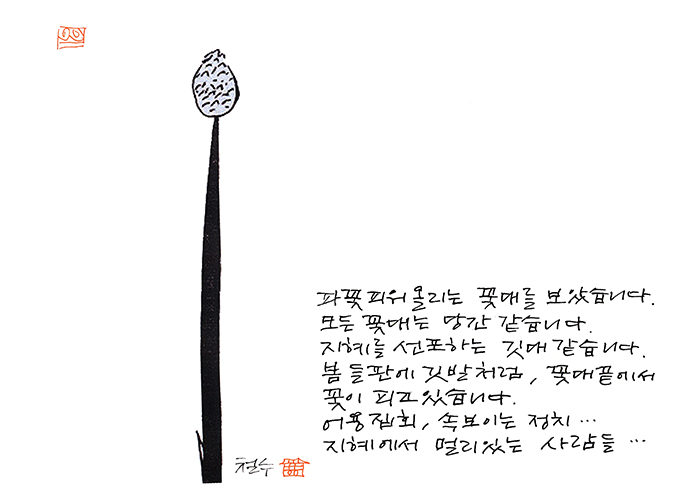 파꽃피워올리는 꽃대를 보았습니다.
모든 꽃대는 당간 같습니다.
지혜를 선포하는 깃대 같습니다.
봄 들판에 깃발처럼, 꽃대끝에서
꽃이 피고있습니다.
어용집회, 속보이는 정치 ···
지혜에서 멀리있는 사람들 ···
철수